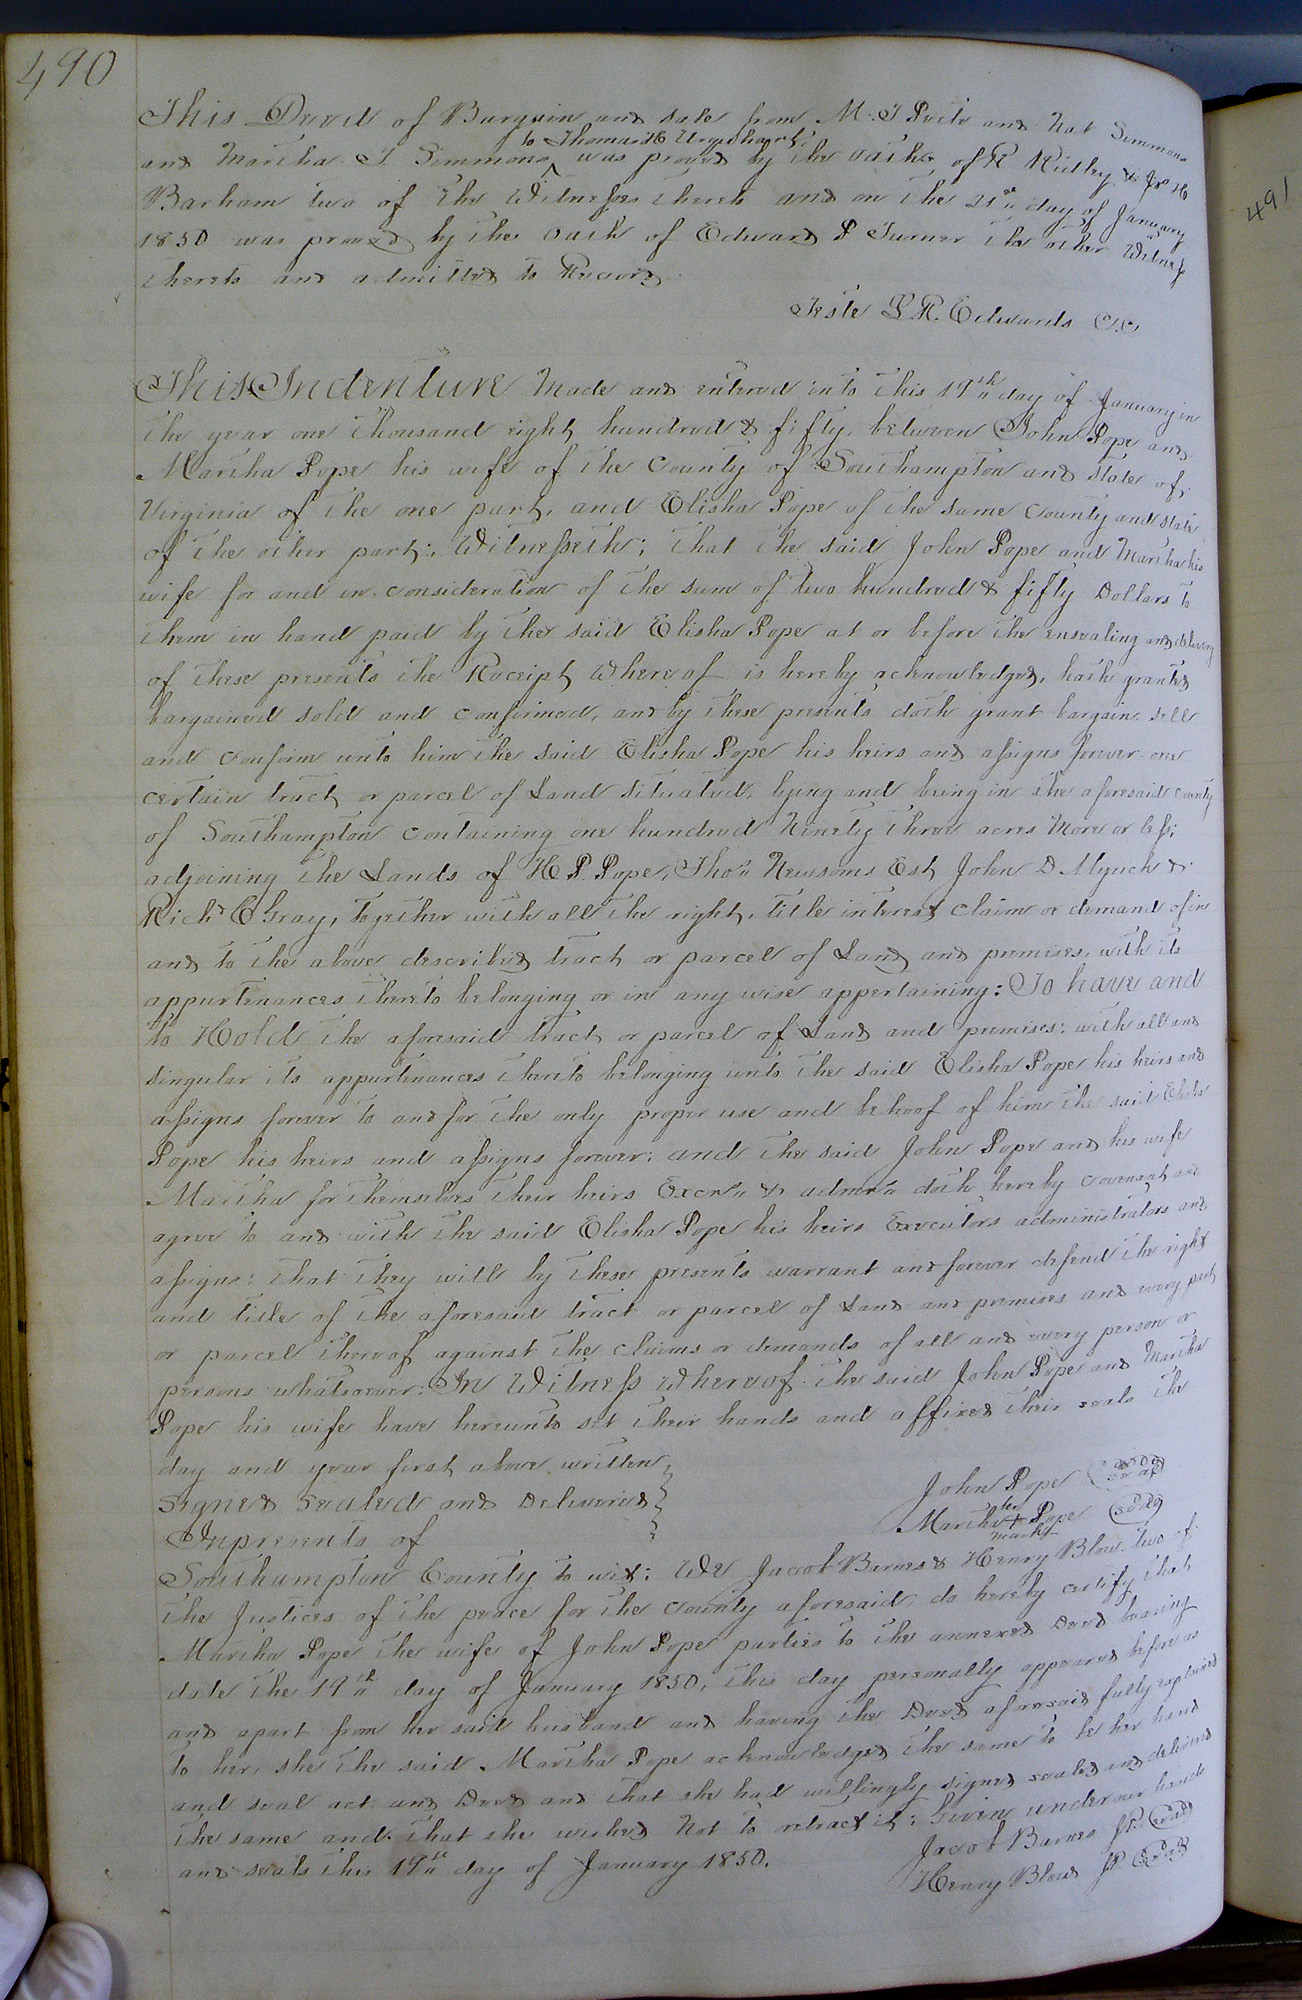 490
This Deed of Bargain and sale from M. T Pvite and Nat Simmons
to Thomas H Urquhart
and Martha T Simmons ^ was proved by the oaths of R Ridley & Jno H
Barham two of the Witnesses thereto and on the 21st day of January
1850 was proved by the oath of Edward P Turner the other Witness
thereto and admitted to Record.
Teste L. R. Edwards C.C.
This Indenture Made and entered into this 19th day of January in
the year one thousand eight hundred & fifty, between John Pope and
Martha Pope his wife of the County of Southampton and State of
Virginia of the one part, and Elisha Pope of the same County and State
of the other part; Witnesseth; that the said John Pope and Martha his
wife for and in consideration of the sum of two hundred & fifty Dollars to
them in hand paid by the said Elisha Pope at or before the ensealing and delivery
of these presents the Receipt whereof is hereby acknowledged, hath granted
bargained sold and confirmed, and by these presents doth grant bargain sell
and confirm unto him the said Elisha Pope his heirs and assigns forever one
certain tract or parcel of Land situated, lying and being in the aforesaid County
of Southampton containing one hundred Ninety three acres More or less;
adjoining the Lands of H. P. Pope, Thos Newsoms Est, John D. Mynch &
Richd C Gray, together with all the right, title interest claim or demand of in
and to the above described tract or parcel of Land and premises, with its
appurtenances thereto belonging or in any wise appertaining: To have and
to Hold the aforesaid tract or parcel of Land and premises: with all and
singular its appurtenances thereto belonging unto the said Elisha Pope his heirs and
assigns forever to and for the only proper use and behoof of him the said Elisha
Pope his heirs and assigns forever; and the said John Pope and his wife
Martha for themselves their heirs Exors & admrs doth hereby covenant and
agree to and with the said Elisha Pope his heirs Executors administrators and
assigns: that they will by these presents warrant and forever defend the right
and title of the aforesaid tract or parcel of Land and premises and every part
or parcel thereof against the claims or demands of all and every person or
persons whatsoever: In Witness whereof the said John Pope and Martha
Pope his wife have hereunto set their hands and affixed their seals the
day and year first above written
Signed Sealed and Delivered
In presents of
John Pope (seal)
her
Martha + Pope (seal)
mark
Southampton County to wit: We Jacob Barnes & Henry Blow two of
the Justices of the peace for the County aforesaid, do hereby certify that
Martha Pope the wife of John Pope parties to the annexed Deed bearing
date the 19th day of January 1850, this day personally appeared before us
and apart from her said husband and having the Deed aforesaid fully explained
to her, she the said Martha Pope acknowledged the same to be her hand
and seal act and Deed and that she had willingly signed sealed and delivered
the same and that she wished Not to retract it; Given under our hands
and seals this 19th day of January 1850.
Jacob Barnes JP. (seal)
Henry Blow JP (seal)
491